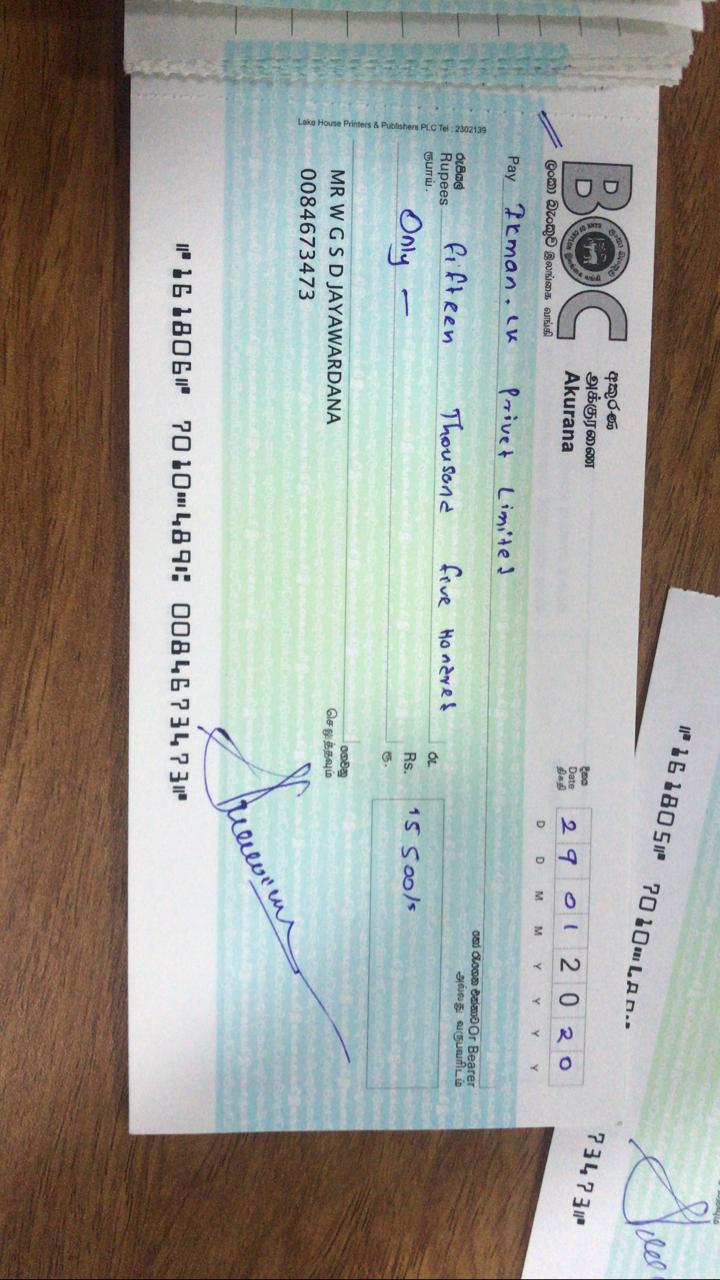 BOC
ලංකා බැංකුව இலங்கை வங்கி
අකුරණ
அக்குரணை
Akurana
දිනය
Date
திகதி
29012020
D D M M Y Y Y Y
Pay Ikman.LK Privet Limited
හෝ රැගෙන එන්නාට Or Bearer
அல்லது வருபவரிடம்
රුපියල්
Rupees
ரூபாய்.
fifteen Thousand five Hondred
Only —
රු.
Rs.
ரூ.
15 500/=
ගෙවනු
செலுத்தவும்
MR W G S D JAYAWARDANA
0084673473
Lake House Printers & Publishers PLC Tel : 2302139
⑈161806⑈ 7010⑉489⑆ 0084673473⑈
⑈161805⑈ 7010⑉48
73473⑈